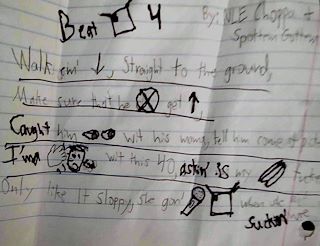 Beat 4
By: NLE Choppa +
Spottem Gottem
Walk em' ↓, Straight to the ground,
Make sure that he got ↑,
Caught him wit his wrong, tell him come
I'ma wit this 40, askin' is my
Only like it sloppy, she gon' when she
suckin'